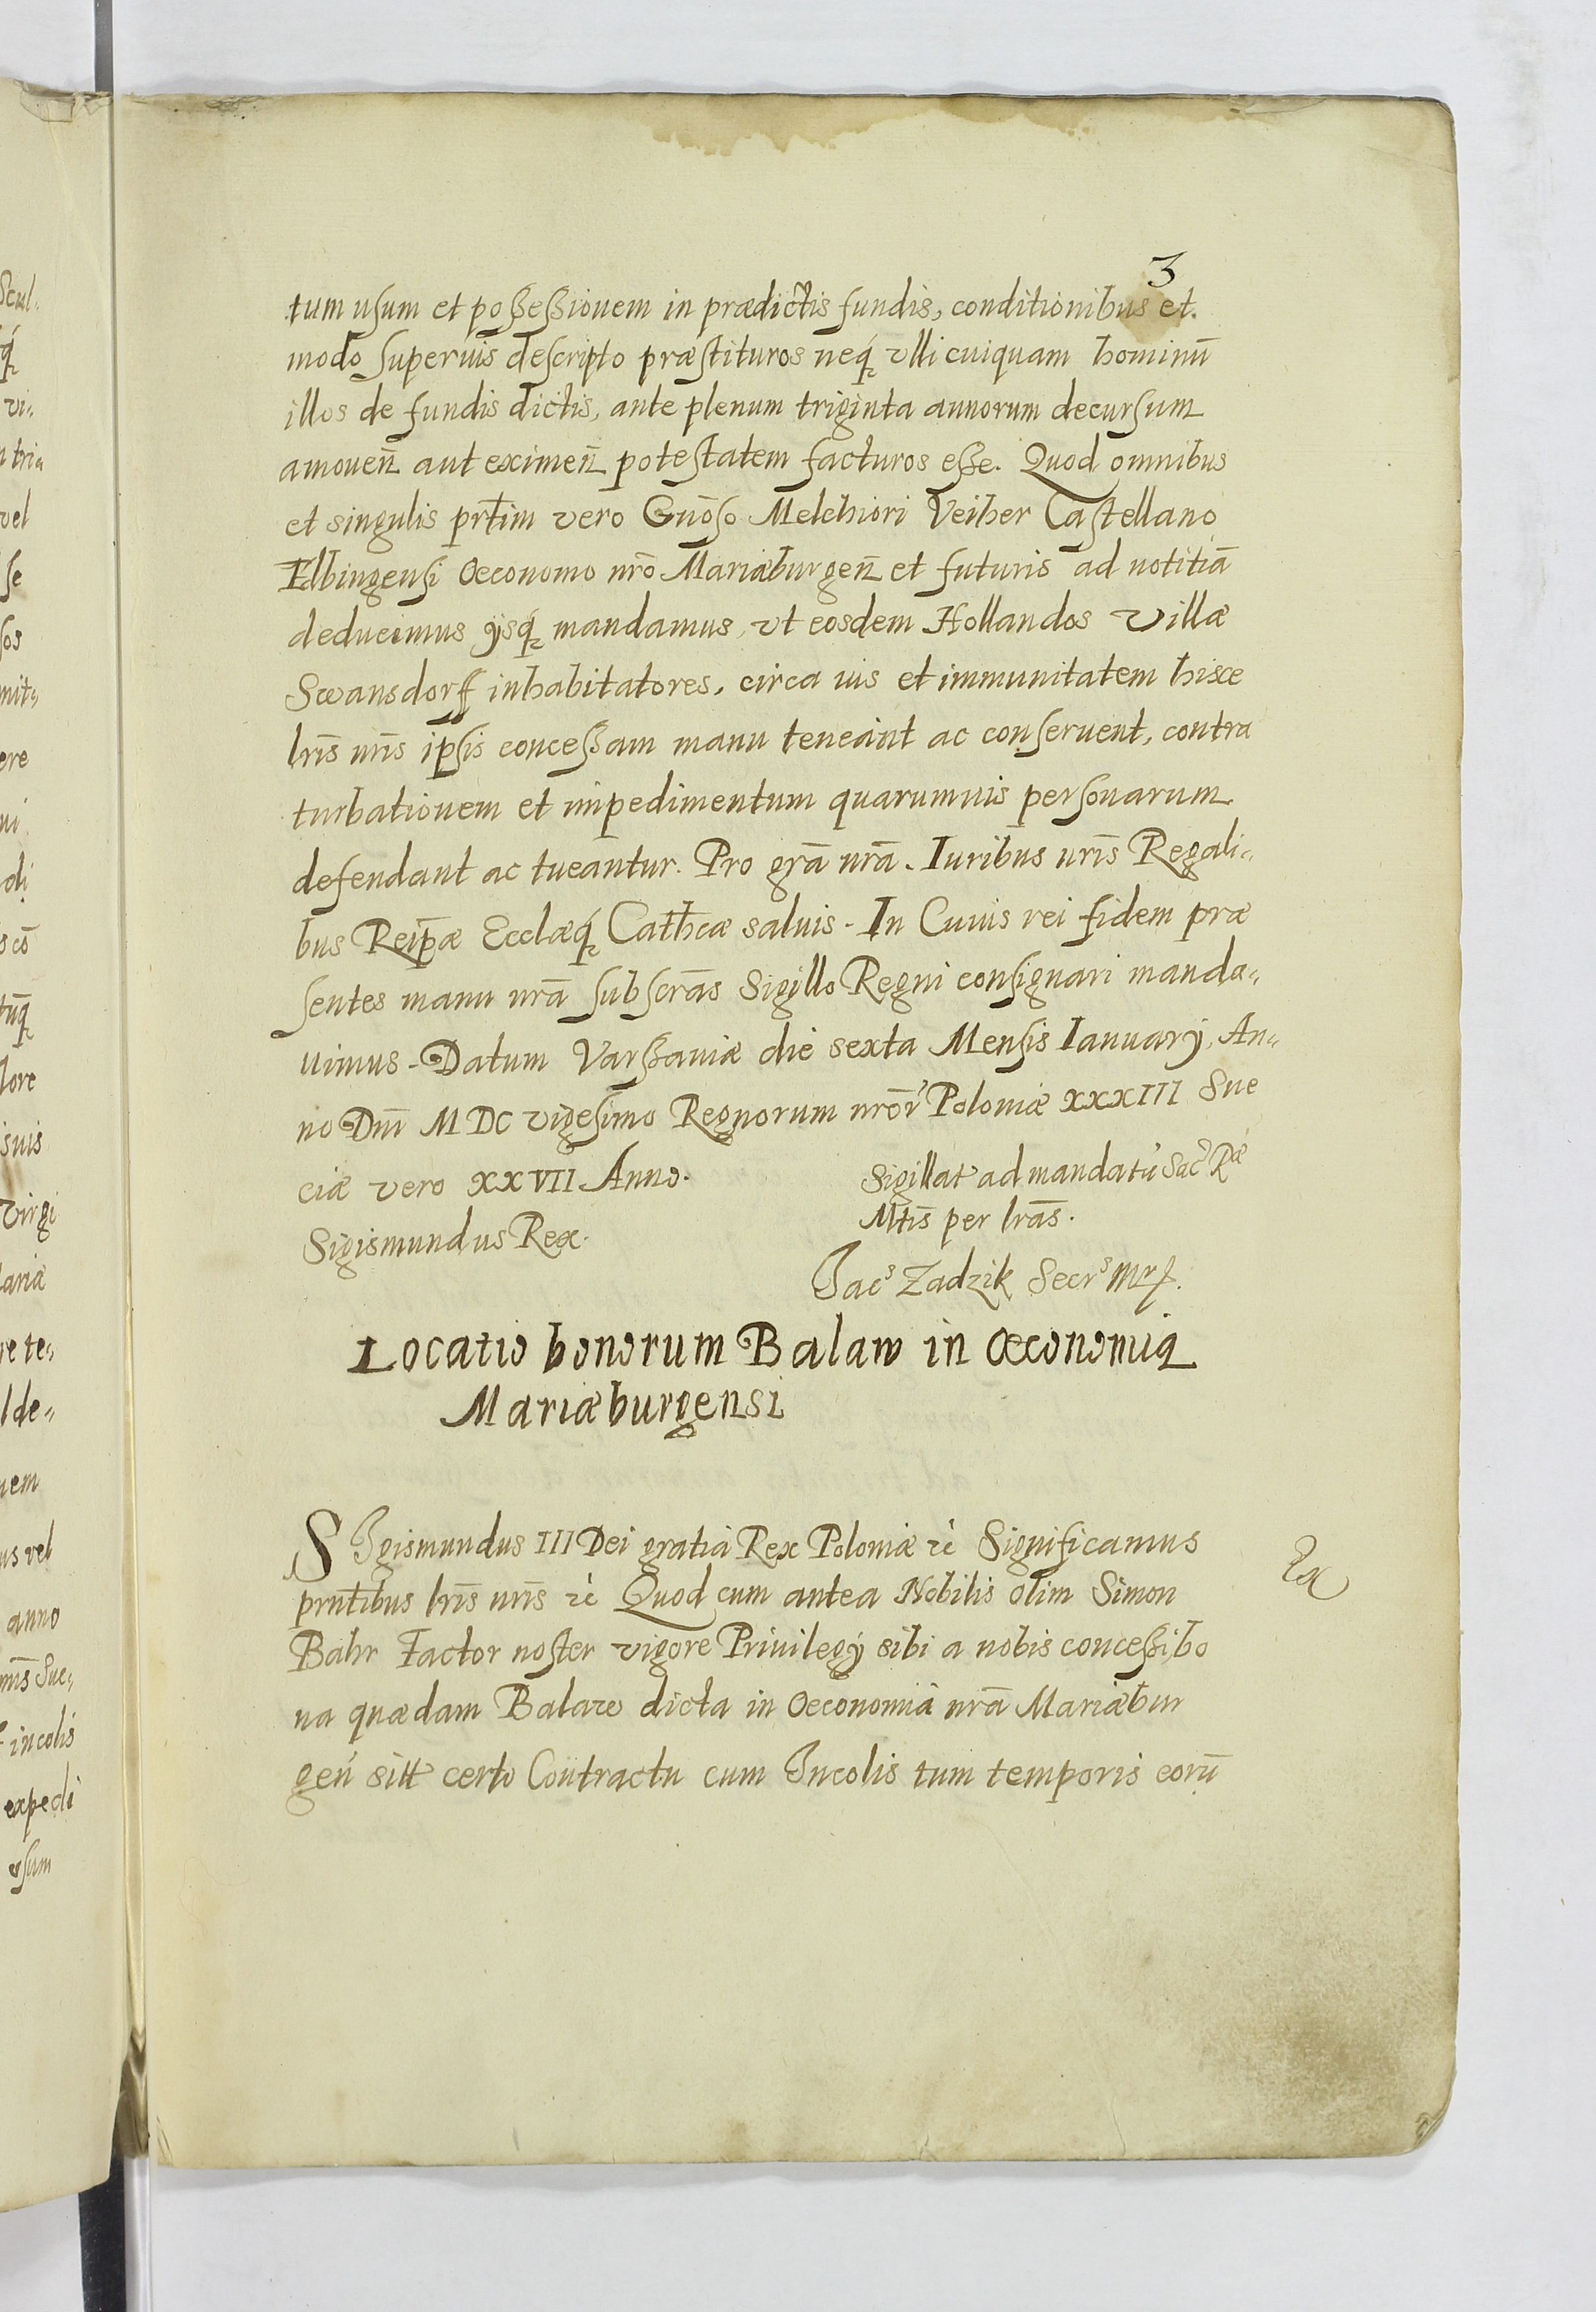 3
tum usum et possessionem in prædictis fundis, conditionibus et
modo superius descripto præstituros neq́ ulli cuiquam hominū
illos de fundis dictis, ante plenum triginta annorum decursum
amouen̄ aut eximen̄ potestatem facturos esse. Quod omnibus
et singulis prt̄im vero Gnōso Melchiori Veiher Castellano
Elbingensi Oeconomo nrō Mariæburgen̄ et futuris ad notitiā
deducimus ijsq́ mandamus, vt eosdem Hollandos Villæ
Swansdorff inhabitatores, circa ius et immunitatem hisce
lrīs nrīs ipsis concessam manu teneant ac conseruent, contra
turbationem et impedimentum quarumuis personarum
defendant ac tueantur. Pro grā nrā. Iuribus nrīs Regali=
bus Reip̄æ Ecclæq́ Cath̄cæ saluis. In Cuius rei fidem præ
sentes manu nrā subscrās Sigillo Regni consignari manda=
uimus. Datum Varssauiæ die sexta Mensis Ianuarij, An=
no Dnī MDC vigesimo Regnorum nrōr̄ Poloniæ XXXIII Sue
ciæ vero XXVII Anno.
Sigismundus Rex.
Sigillat ad mandatū Sac Ræ
Mtīs per lrās.
Jacs Zadzik Secrs Mr p.
Locatio bonorum Balaw in Oeconomia
Mariæburgensi
SJgismundus III Dei gratia Rex Poloniæ ꝛc Significamus
prnt̄ibus lrīs nrīs ꝛc Quod cum antea Nobilis olim Simon
Bahr Factor noster vigore Priuilegij sibi a nobis concessi, bo
na quædam Balaw dicta in Oeconomia nrā Mariæbur
gen̄ sitt certo Contractu cum Jncolis tum temporis eorū